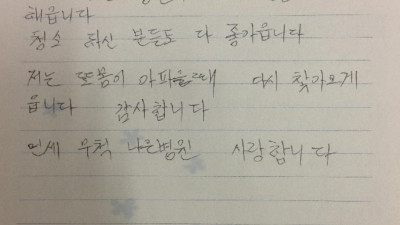 해읍니다
청소 하신 분들도 다 종가읍니다
저는 또 몸이 아파을때 다시 찾아오게
읍니다 감사합니다
연세 무척 나은병원 사랑합니다